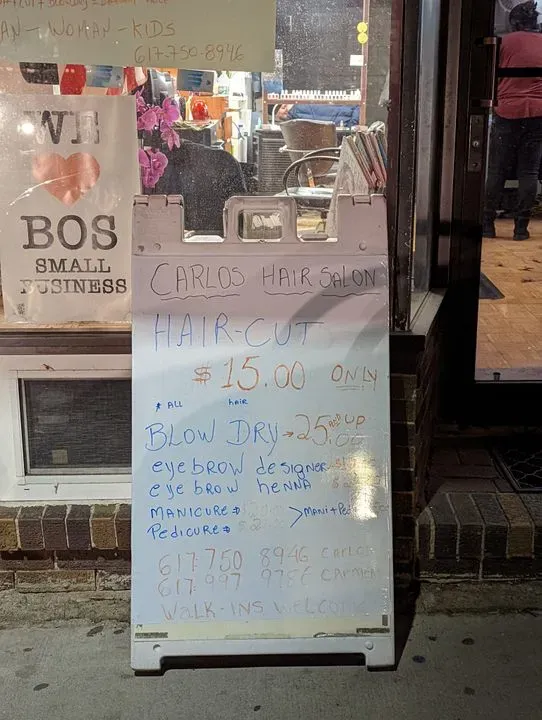 WOMAN - KIDS
617-750-8946
WE
BOS
SMALL
BUSINESS
CARLOS HAIR SALON
HAIR-CUT
$15.00 ONLY
* ALL hair
BLOW DRY → 25.00 AND UP
eyebrow designer
eyebrow henna
MANICURE
PEDICURE
617.750 8946 CARLOS
617.997 CARMEN
WALK-INS WELCOME